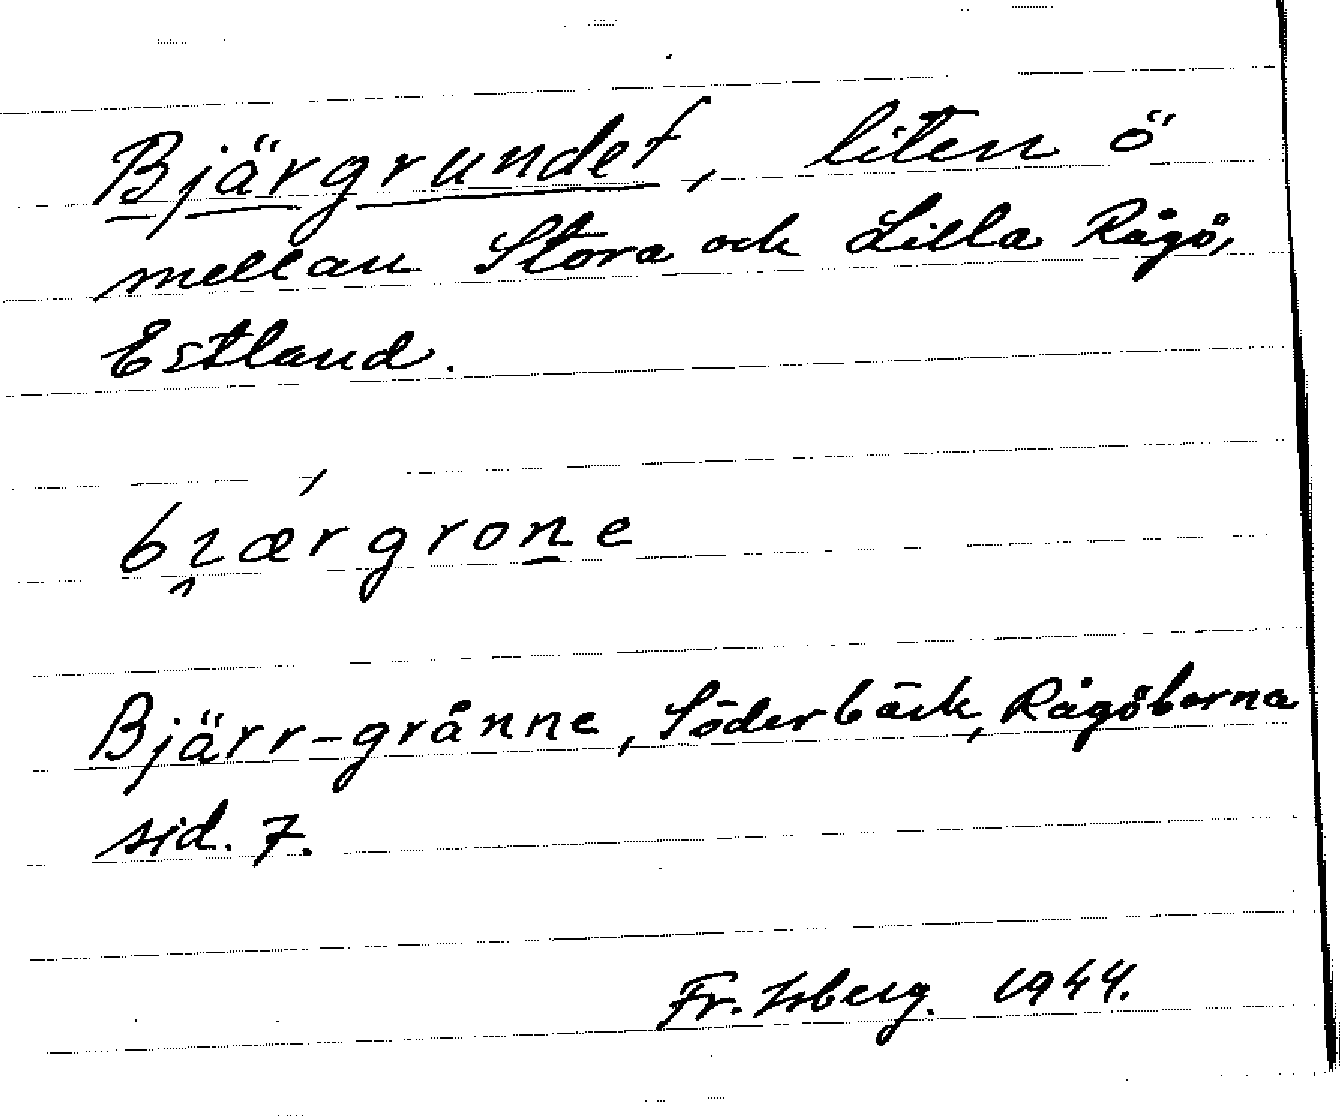 Bjärgrundet, liten ö
mellan Stora och Lilla Rågö,
Estland.
bi̯ærgróṉe
Bjärr-grånne, Söderbäck, Rågöborna
sid. 7.
Fr. Isberg. 1944.